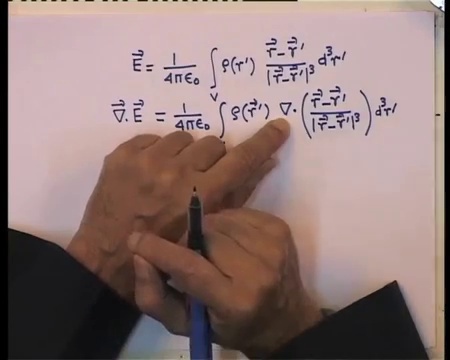 \vec{E} = \frac{1}{4\pi\epsilon_0} \int_V \rho(r') \frac{\vec{r}-\vec{r}'}{|\vec{r}-\vec{r}'|^3} d^3r'
\vec{\nabla}\cdot\vec{E} = \frac{1}{4\pi\epsilon_0} \int \rho(\vec{r}') \nabla\cdot\left(\frac{\vec{r}-\vec{r}'}{|\vec{r}-\vec{r}'|^3}\right) d^3r'